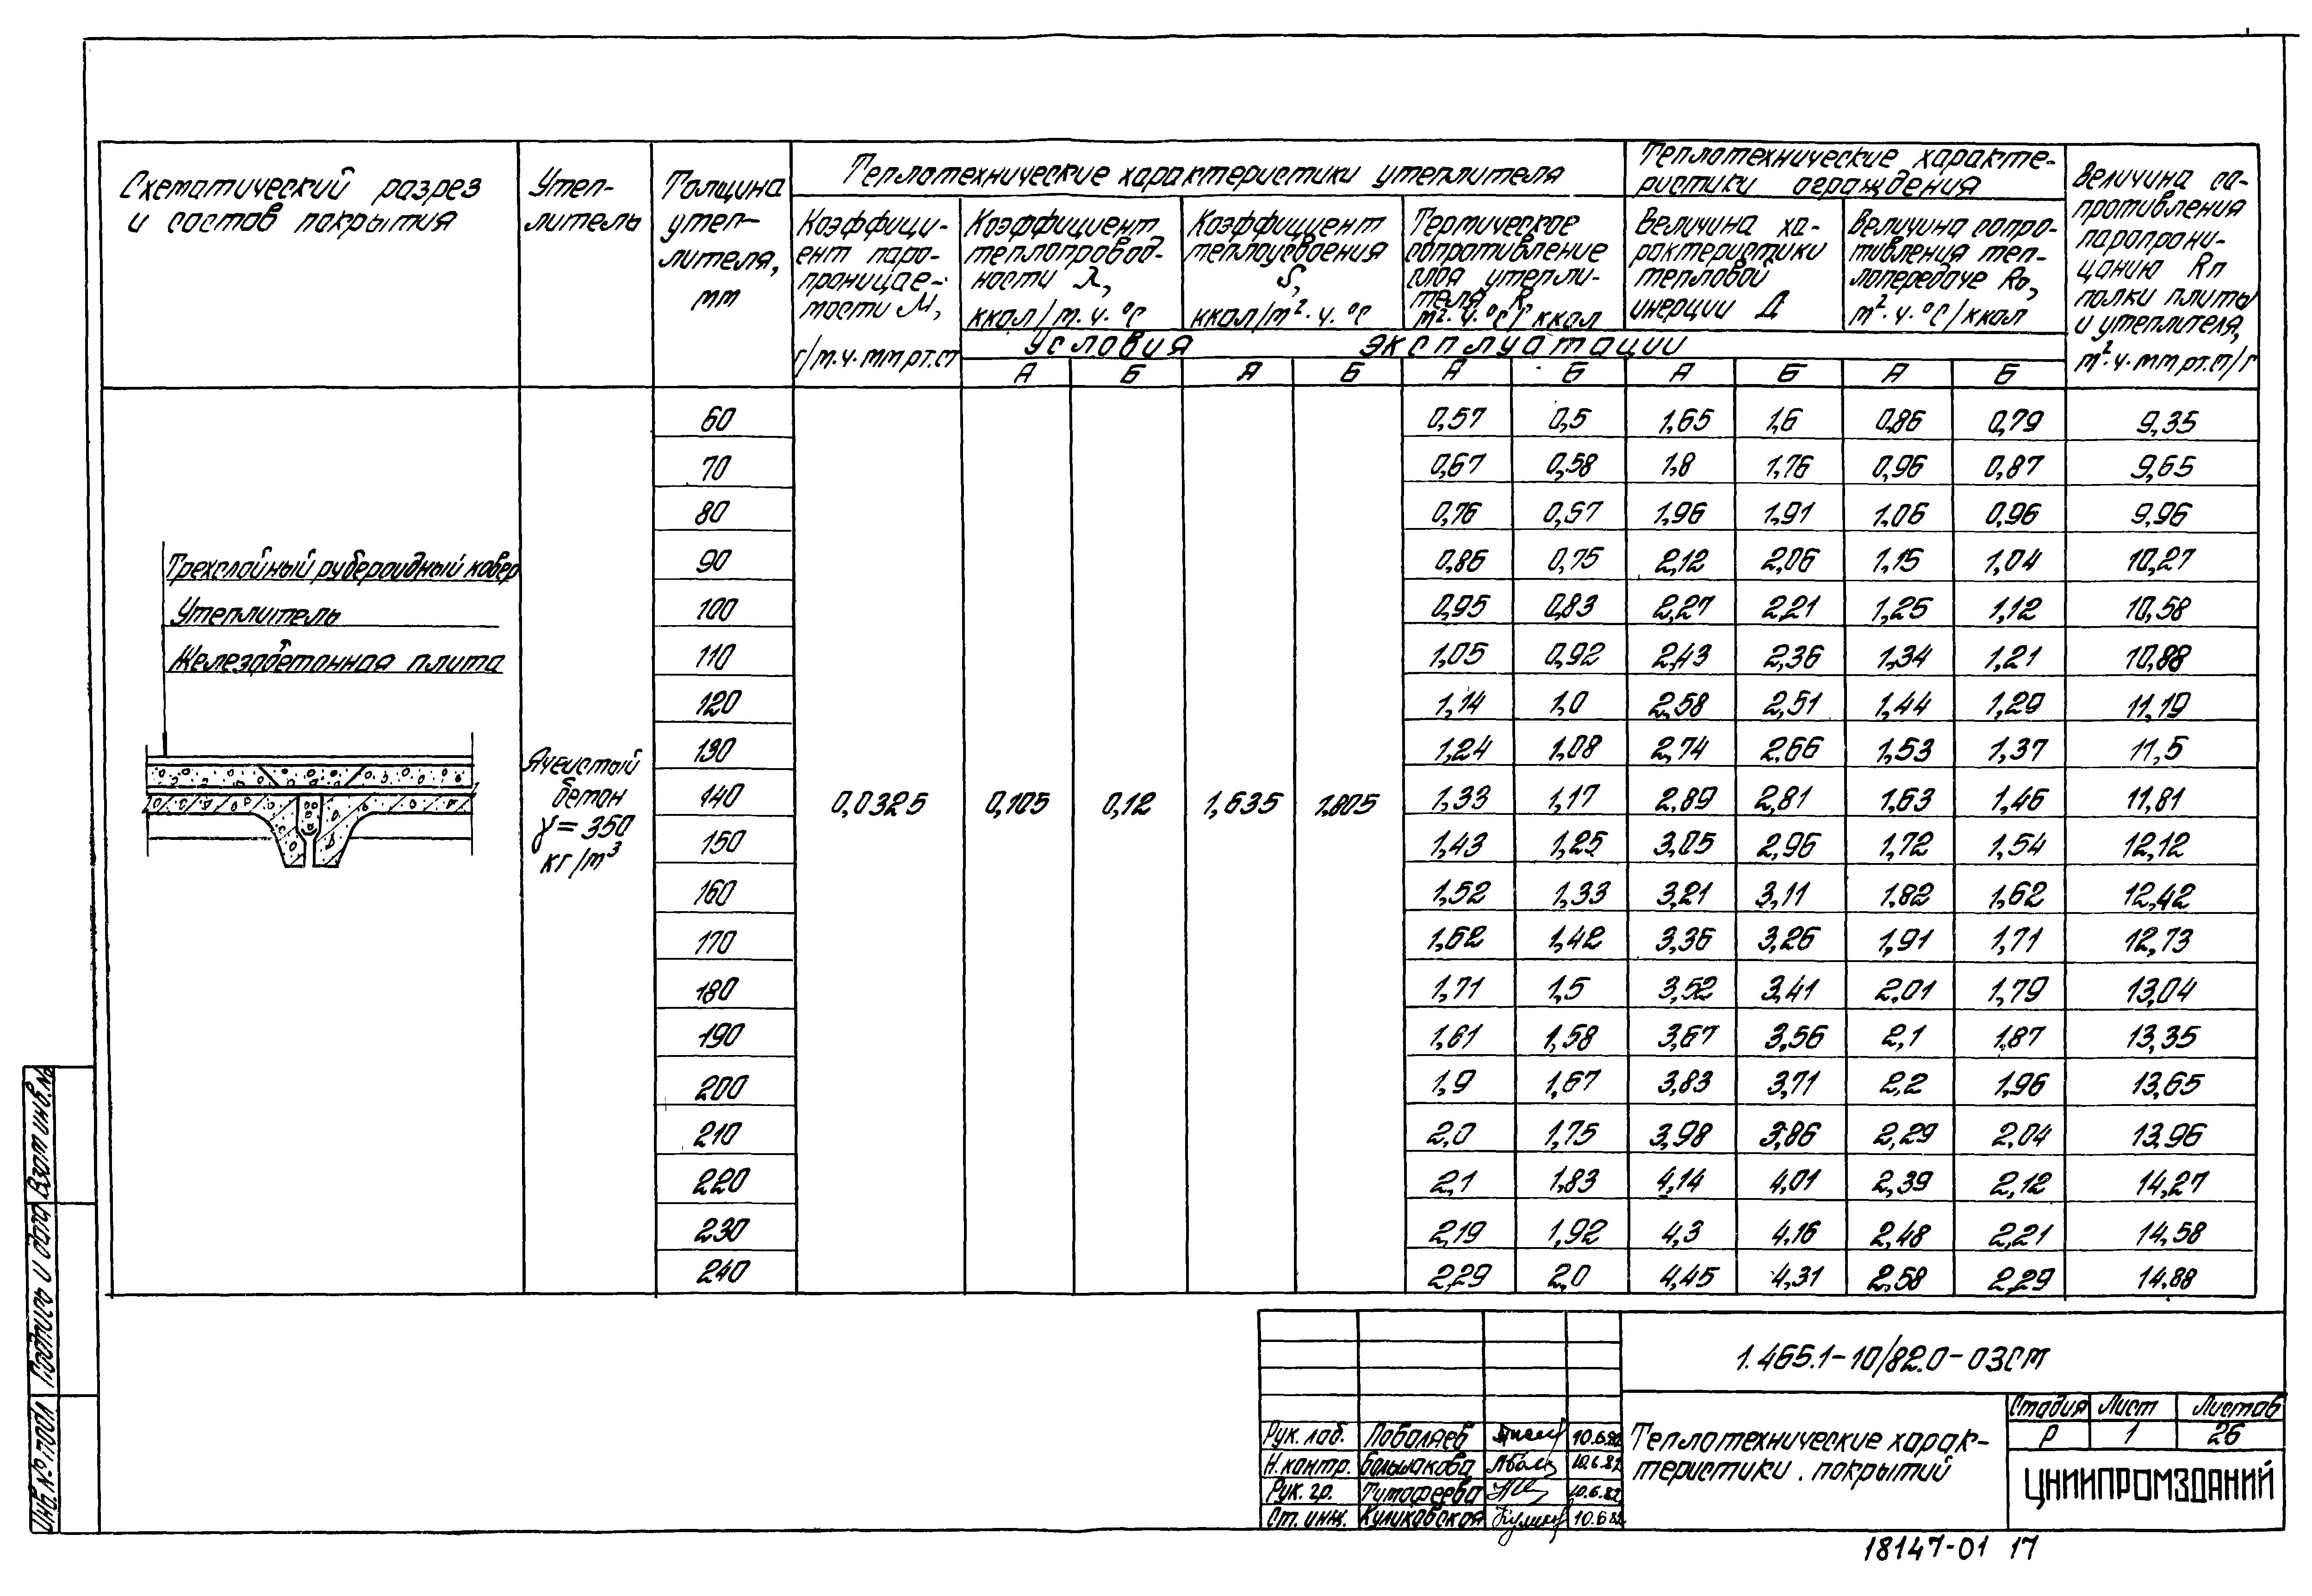 Схематический разрез
и состав покрытия
Утеп-
литель
Толщина
утеп-
лителя,
мм
Теплотехнические характеристики утеплителя
Коэффици-
ент паро-
проницае-
мости М,
г/м.ч.мм рт.ст
Коэффициент
теплопровод-
ности λ,
ккал/м.ч.°С
Коэффициент
теплоусвоения
S,
ккал/м²·ч.°С
Термическое
сопротивление
слоя утепли-
теля R,
м²·ч.°С/ккал
Теплотехнические характе-
ристики ограждения
Величина ха-
рактеристики
тепловой
инерции Д
Величина сопро-
тивления теп-
лопередаче Rо,
м²·ч·°С/ккал
Величина со-
противления
паропрони-
цанию Rп
полки плиты
и утеплителя,
м²·ч·мм рт.ст/г
Условия эксплуатации
А Б А Б А Б А Б А Б
60 0,57 0,5 1,65 1,6 0,86 0,79 9,35
70 0,67 0,58 1,8 1,76 0,96 0,87 9,65
80 0,76 0,67 1,96 1,91 1,06 0,96 9,96
90 0,86 0,75 2,12 2,06 1,15 1,04 10,27
100 0,95 0,83 2,27 2,21 1,25 1,12 10,58
110 1,05 0,92 2,43 2,36 1,34 1,21 10,88
120 1,14 1,0 2,58 2,51 1,44 1,29 11,19
130 1,24 1,08 2,74 2,66 1,53 1,37 11,5
140 1,33 1,17 2,89 2,81 1,63 1,46 11,81
150 1,43 1,25 3,05 2,96 1,72 1,54 12,12
160 1,52 1,33 3,21 3,11 1,82 1,62 12,42
170 1,62 1,42 3,36 3,26 1,91 1,71 12,73
180 1,71 1,5 3,52 3,41 2,01 1,79 13,04
190 1,61 1,58 3,67 3,56 2,1 1,87 13,35
200 1,9 1,67 3,83 3,71 2,2 1,96 13,65
210 2,0 1,75 3,98 3,86 2,29 2,04 13,96
220 2,1 1,83 4,14 4,01 2,39 2,12 14,27
230 2,19 1,92 4,3 4,16 2,48 2,21 14,58
240 2,29 2,0 4,45 4,31 2,58 2,29 14,88
Трехслойный рубероидный ковер
Утеплитель
Железобетонная плита
Ячеистый
бетон
γ=350
кг/м³
0,0325 0,105 0,12 1,635 1,805
Взам инв.№
Подпись и дата
Инв.№ подл
1.465.1-10/82.0-03СМ
Рук. лаб. Поваляев 10.6.82
Н.контр. Большакова 10.6.82
Рук. гр. Тимофеева 10.6.82
Ст. инж. Куликовская 10.6.82
Теплотехнические харак-
теристики покрытий
Стадия Лист Листов
Р 1 26
ЦНИИПРОМЗДАНИЙ
18147-01 17